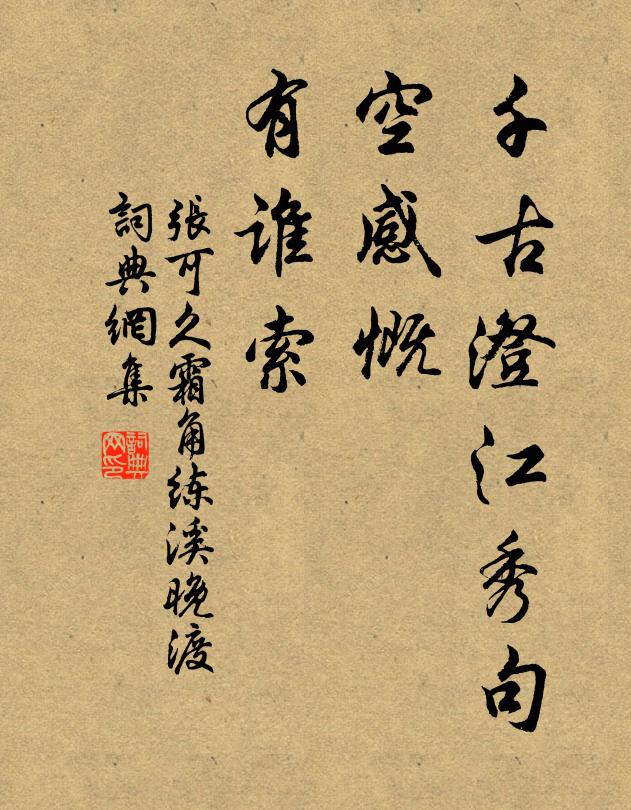 千古澄江秀句
空感慨
有誰索
張可久霜角练溪晚渡
詞典網集
詞典
网印